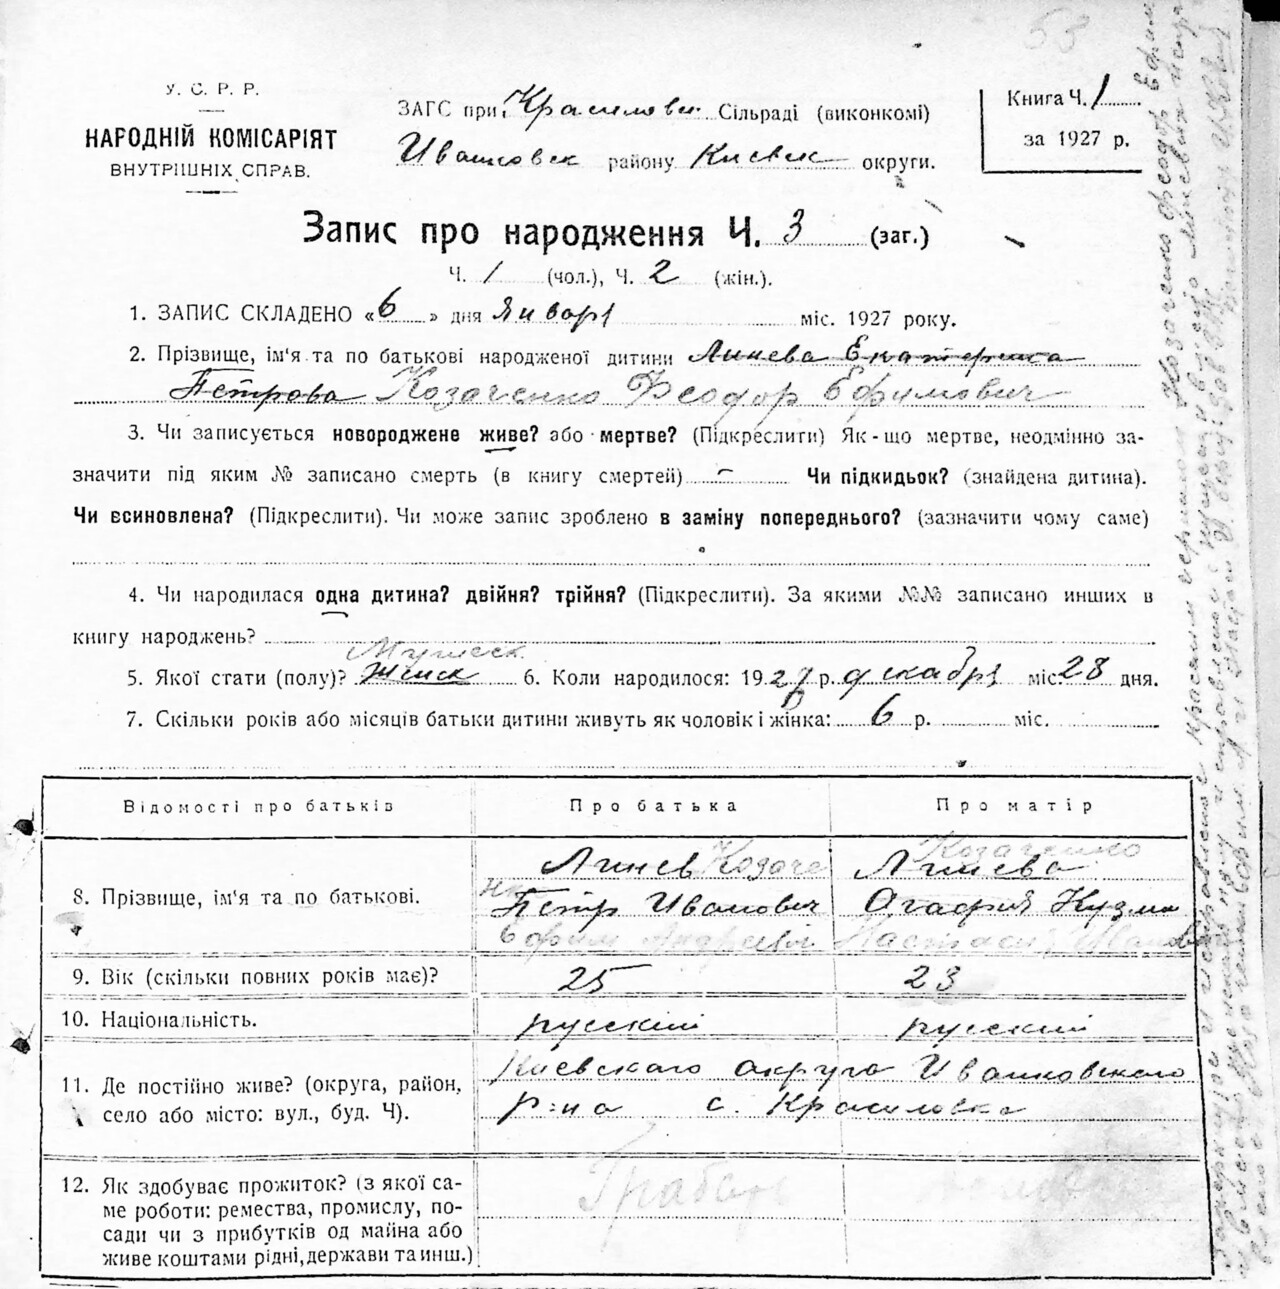 53
У. С. Р. Р.
НАРОДНІЙ КОМІСАРІЯТ
ВНУТРІШНІХ СПРАВ.
ЗАГС при Красиловск Сільраді (виконкомі)
Ивашковск району Киевск округи.
Книга Ч. 1
за 1927 р.
Запис про народження Ч. 3 (заг.)
Ч. 1 (чол.), Ч. 2 (жін.).
1. ЗАПИС СКЛАДЕНО «6» дня Января міс. 1927 року.
2. Прізвище, ім'я та по батькові народженої дитини Линева Екатерина
Петрова Козаченко Феодор Ефимович
3. Чи записується новороджене живе? або мертве? (Підкреслити) Як-що мертве, неодмінно за-
значити під яким № записано смерть (в книгу смертей) – Чи підкидьок? (знайдена дитина).
Чи всиновлена? (Підкреслити). Чи може запис зроблено в заміну попереднього? (зазначити чому саме)
4. Чи народилася одна дитина? двійня? трійня? (Підкреслити). За якими №№ записано инших в
книгу народжень?
Мужеск.
5. Якої стати (полу)? женск 6. Коли народилося: 1927 р. декабря міс. 28 дня.
7. Скільки років або місяців батьки дитини живуть як чоловік і жінка: 6 р. міс.
Відомості про батьків Про батька Про матір
8. Прізвище, ім'я та по батькові.
Линев Козаче
нко
Петр Иванович
Ефим Андреевич
Козаченко
Линева
Агафия Кузьм
Настасия Иванов
9. Вік (скільки повних років має)? 25 23
10. Національність. русский русский
11. Де постійно живе? (округа, район,
село або місто: вул., буд. Ч).
Киевскаго округа Ивашковскаго
р-на с. Красиловка
12. Як здобуває прожиток? (з якої са-
ме роботи: ремества, промислу, по-
сади чи з прибутків од майна або
живе коштами рідні, держави та инш.)
Грабарь